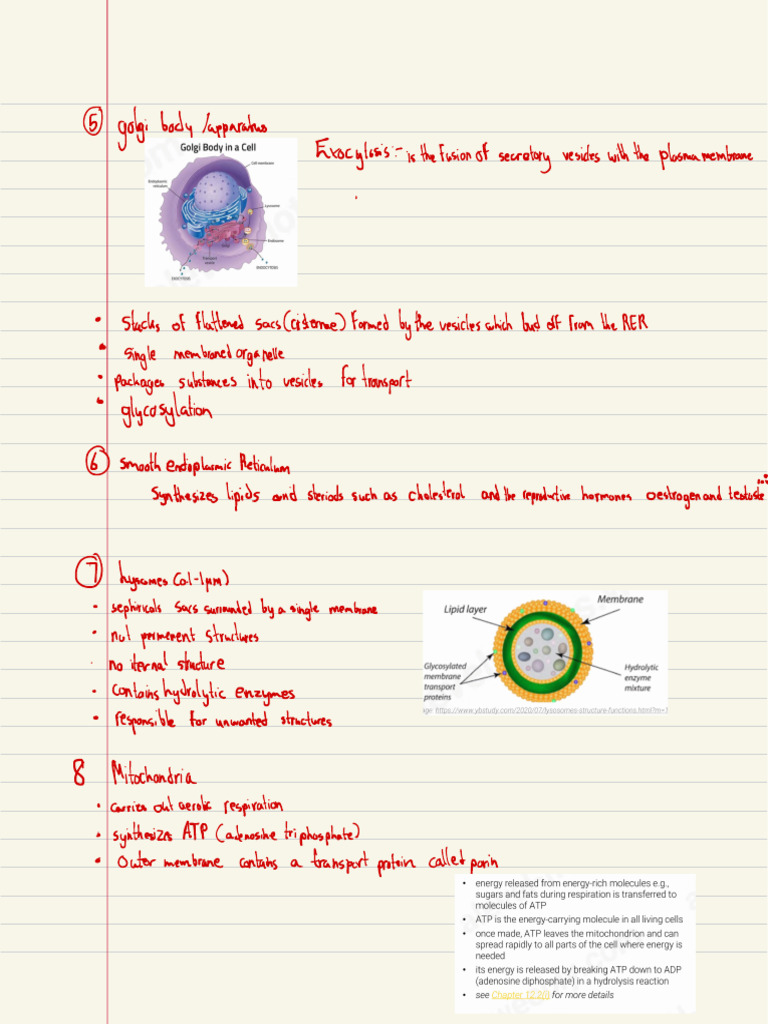 ⑤ golgi body /apparatus
Golgi Body in a Cell
Cell membrane
Endoplasmic reticulum
Lysosome
Endosome
Golgi
Transport vesicle
EXOCYTOSIS
ENDOCYTOSIS
Exocytosis:- is the fusion of secretory vesicles with the plasma membrane
• Stacks of flattened sacs (cisternae) formed by the vesicles which bud off from the RER
• single membraned organelle
• packages substances into vesicles for transport
• glycosylation
⑥ smooth endoplasmic Reticulum
Synthesizes lipids and steriods such as cholesterol and the reproductive hormones oestrogen and
⑦ Lysosomes (0.1-1μm)
• sephiricals sacs surrounded by a single membrane
• not permenent structures
• no iternal structure
• contains hydrolytic enzymes
• responsible for unwanted structures
Lipid layer
Membrane
Glycosylated
membrane
transport
proteins
Hydrolytic
enzyme
mixture
https://www.ybstudy.com/2020/07/lysosomes-structure-functions.html?m=1
8 Mitochondria
• carries out aerobic respiration
• synthesizes ATP (adenosine triphosphate)
• Outer membrane contains a transport protein called porin
• energy released from energy-rich molecules e.g.,
sugars and fats during respiration is transferred to
molecules of ATP
• ATP is the energy-carrying molecule in all living cells
• once made, ATP leaves the mitochondrion and can
spread rapidly to all parts of the cell where energy is
needed
• its energy is released by breaking ATP down to ADP
(adenosine diphosphate) in a hydrolysis reaction
• see Chapter 12.2(i) for more details